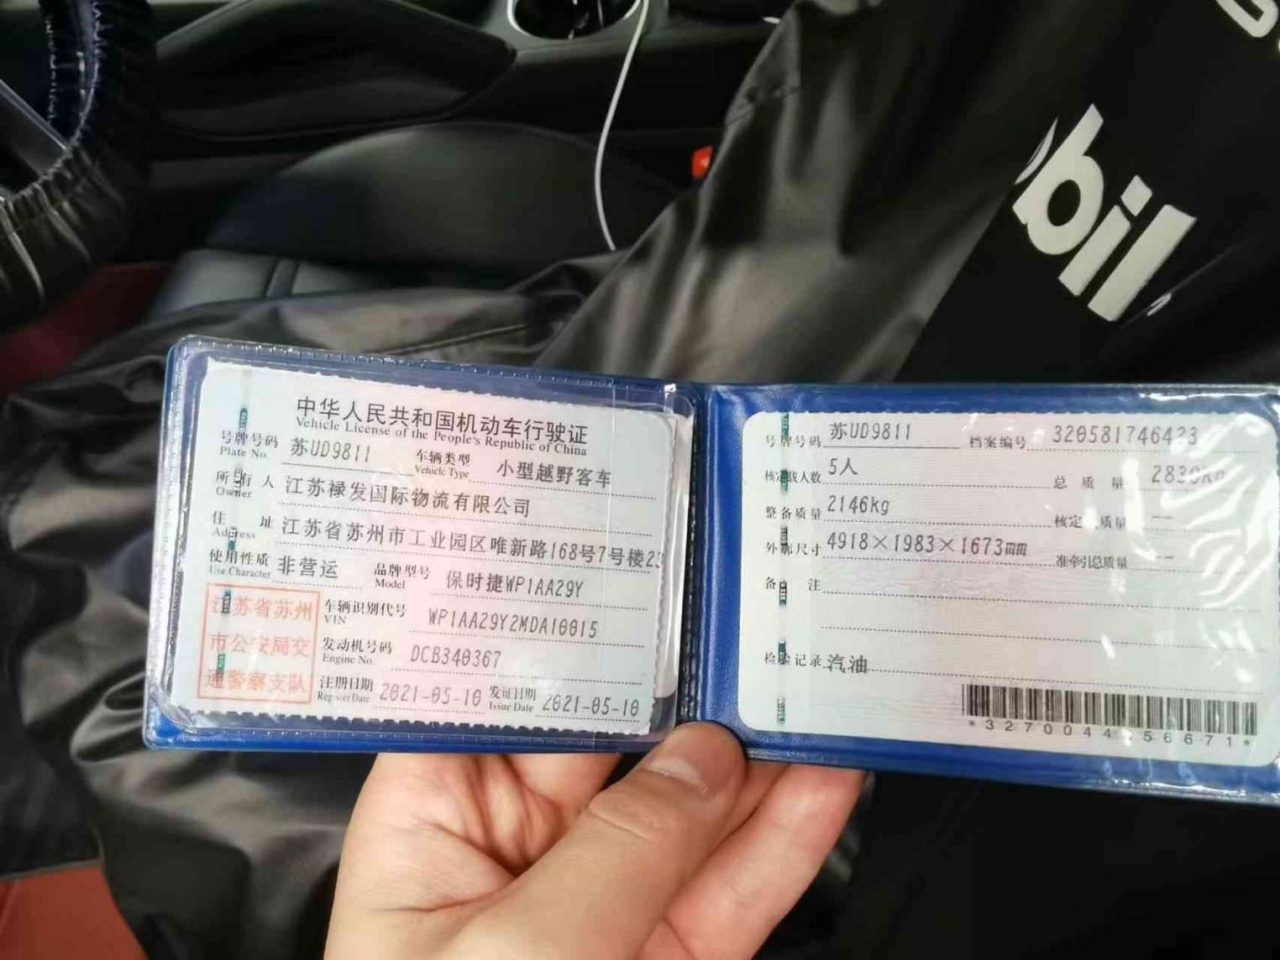 bil
中华人民共和国机动车行驶证
Vehicle License of the People's Republic of China
号牌号码 苏UD9811 车辆类型 小型越野客车
Plate No. Vehicle Type
所有人 江苏禄发国际物流有限公司
Owner
住址 江苏省苏州市工业园区唯新路168号7号楼23
Address
使用性质 非营运 品牌型号 保时捷WP1AA29Y
Use Character Model
江苏省苏州
市公安局交
通警察支队
车辆识别代号 WP1AA29Y2MDA10015
VIN
发动机号码 DCB340367
Engine No.
注册日期 2021-05-10 发证日期 2021-05-10
Register Date Issue Date
号牌号码 苏UD9811 档案编号 320581746423
核定载人数 5人 总质量 2830kg
整备质量 2146kg 核定 质量 --
外廓尺寸 4918×1983×1673mm 准牵引总质量 --
备注
检验记录 汽油
*3270044 56671*